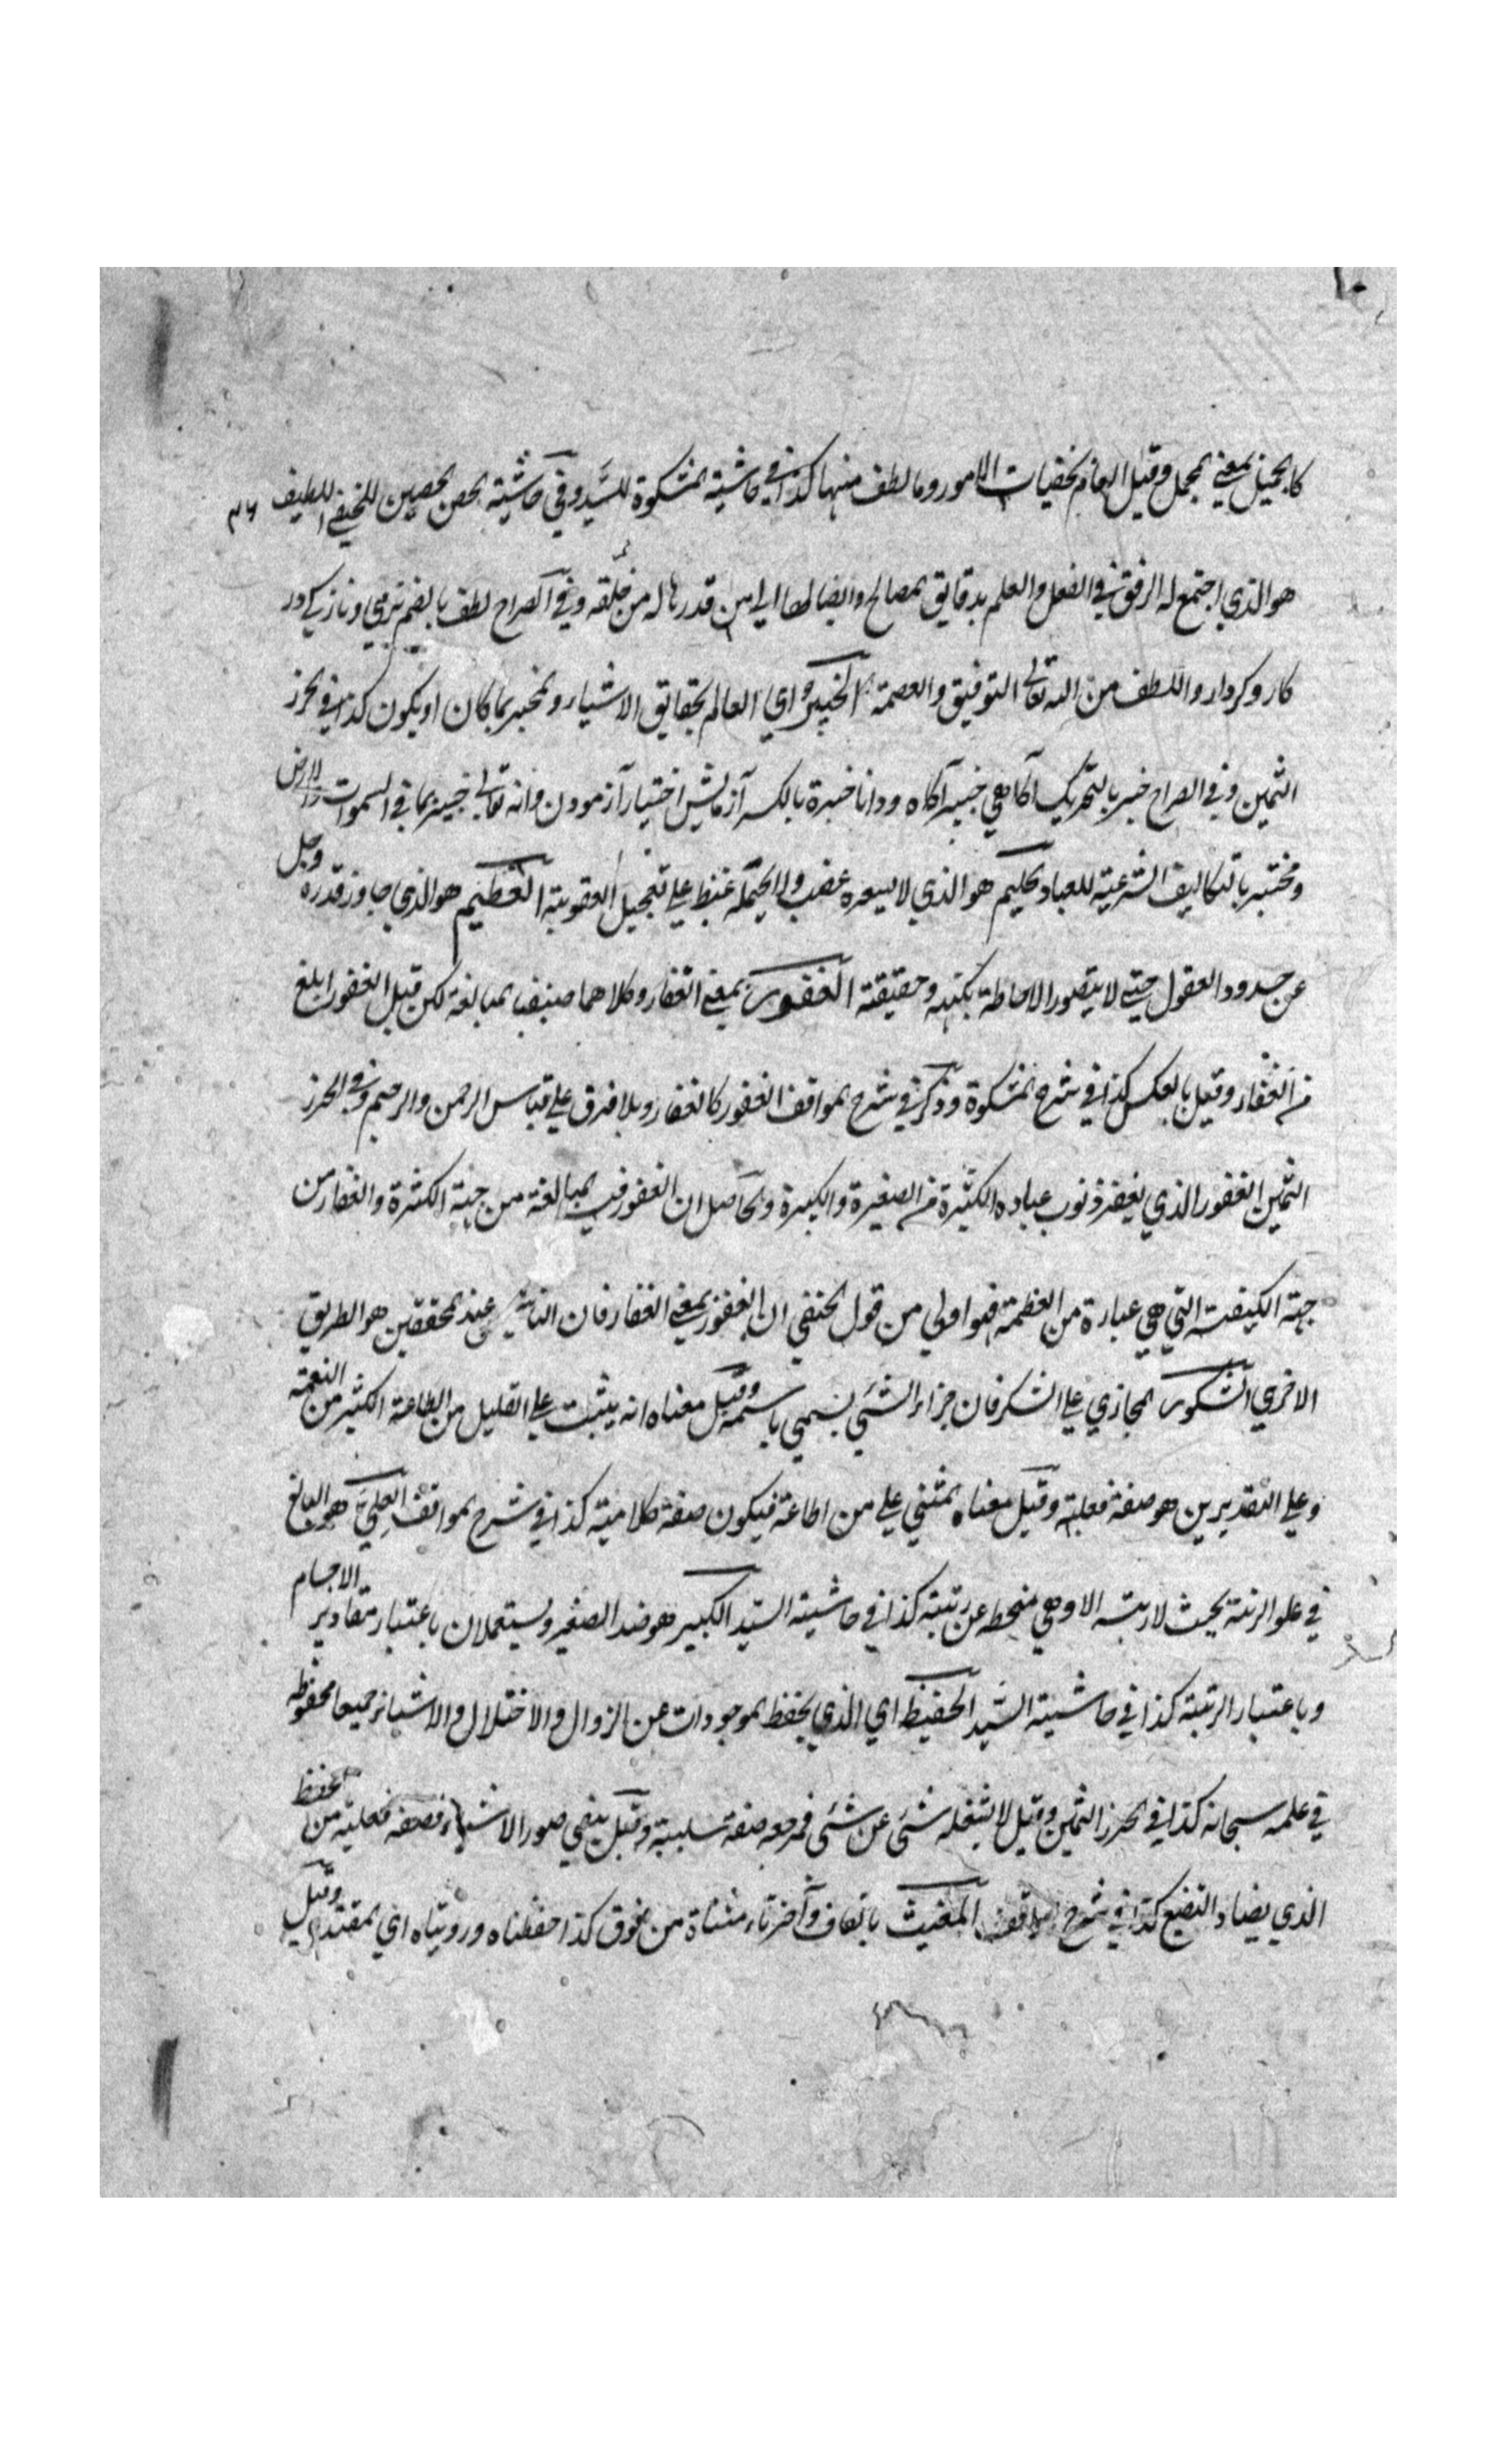 كالجميل بمعنى المجمل وقيل العالم بخفيات الامور وما لطف منها كذا في حاشية المشكوة للسيد وفي حاشية الحصن الحصين للحنفي اللطيف
هو الذي اجتمع له الرفق في الفعل والعلم بدقايق المصالح وايصالها الى من قدرها له من خلقه وفي الصراح لطف بالضم نرمي ونازكي در
كار وكردار واللطف من الله تعالى التوفيق والعصمة الخبير اي العالم بحقايق الاشياء والمخبر بما كان او يكون كذا في الحرز
الثمين وفي الصراح خبر بالتحريك آگاهي خبير آگاه ودانا خبرة بالكسر آزمايش اختبار آزمودن وانه تعالى خبير بما في السموات والارض
ومختبر بالتكاليف الشرعية للعباد الحليم هو الذي لا يسعره غضب ولا يحمله غيظ على تعجيل العقوبة العظيم هو الذي جاوز قدره وجل
عن حدود العقول حتى لا يتصور الاحاطة بكنهه وحقيقته الغفور بمعنى الغفار وكلاهما صيغت مبالغة لكن قيل الغفور ابلغ
من الغفار وقيل بالعكس كذا في شرح المشكوة وذكر في شرح المواقف الغفور كالغفار وبلا فرق على قياس الرحمن والرحيم وفي الحرز
الثمين الغفور الذي يغفر ذنوب عباده الكثيرة من الصغيرة والكبيرة والحاصل ان الغفور فيه المبالغة من جهة الكثرة والغفار من
جهة الكيفية التي هي عبارة من العظمة فهو اولى من قول الحنفي ان الغفور بمعنى الغفار فان عند المحققين هو الطريق
الاخرى الشكور المجازي على الشكر فان جزاء الشئ يسمى باسمه وقيل معناه انه يثبت على القليل من الطاعة الكثير من النعمة
وعلى التقديرين هو صفة فعلية وقيل معناه المثني على من اطاعه فيكون صفة كلامية كذا في شرح المواقف العلي هو البالغ
في علو الرتبة بحيث لا رتبه الا وهي منحطه عن رتبته كذا في حاشية السيد الكبير هو ضد الصغير ويستعملان باعتبار مقادير الاجسام
وباعتبار الرتبة كذا في حاشية السيد الحفيظ اي الذي يحفظ الموجودات عن الزوال والاختلال والاشياء جميعا محفوظه
في علمه سبحانه كذا في الحرز الثمين وقيل لا يشغله شئ عن شئ فمرجعه صفة سلبية وقيل يبقي صور الاشياء فصفة فعلية من الحفظ
الذي يضاد التضيع كذا في شرح المواقف المغيث بالقاف وآخر تاء مثناة من فوق كذا حفظناه ورويناه اي المقتدر وقيل